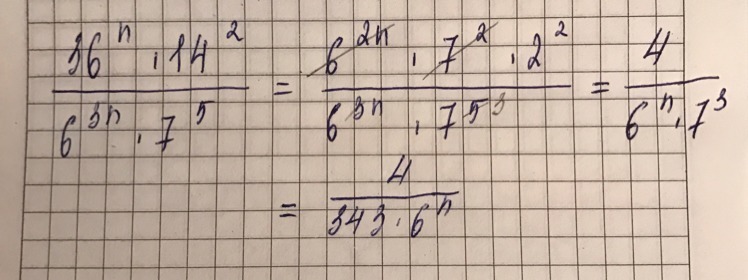 36ⁿ · 14² / 6³ⁿ · 7⁵ = 6²ⁿ · 7² · 2² / 6³ⁿ · 7⁵ ³ = 4 / 6ⁿ · 7³
= 4 / 343 · 6ⁿ